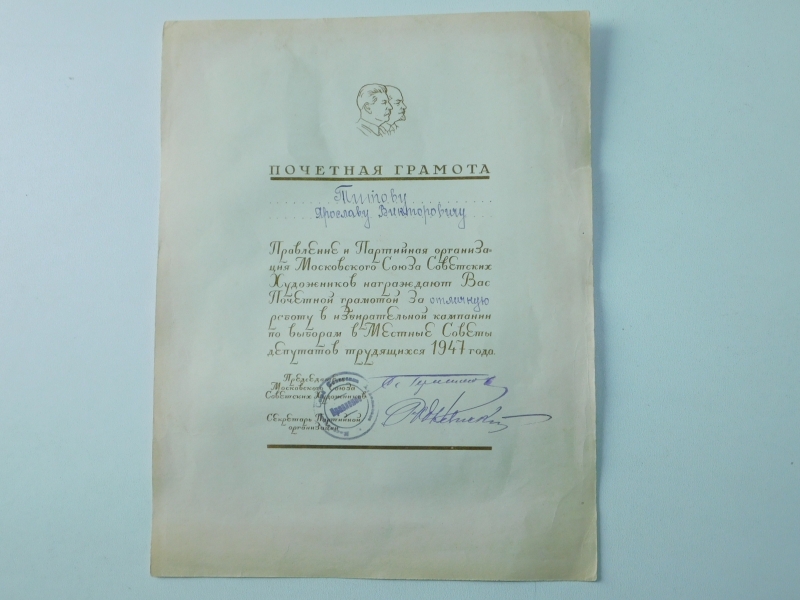 ПОЧЕТНАЯ ГРАМОТА
Титову
Ярославу Викторовичу
Правление и Партийная организа-
ция Московского Союза Советских
Художников награждают Вас
Почетной грамотой за отличную
работу в избирательной кампании
по выборам в Местные Советы
депутатов трудящихся 1947 года.
Председатель
Московского Союза
Советских Художников
Секретарь Партийной
организации